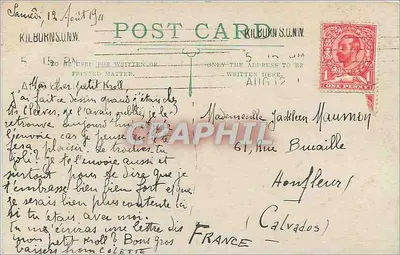 Samedi 12 Août 1911
KILBURN S.O.N.W.
KILBURN S.O.N.W.
POST CARD
TO BE USED FOR WRITTEN OR
PRINTED MATTER.
ONLY THE ADDRESS TO BE
WRITTEN HERE.
5 15 PM
AUG 12
ONE PENNY
1 1
Mon cher petit Kroll
J'ai fait ce dessin quand j'étais chez
je l'avais oublié, je le
retrouve aujourd'hui
t'envoie, car je pense
fera plaisir. Le trouves tu
joli? Je te l'envoie aussi et
surtout pour te dire que je
t'embrasse bien bien fort et que
je serais bien plus contente
si tu étais avec moi.
Tu me écriras une lettre dis
gros petit Kroll? Bons gros
baisers from COLETTE
Mademoiselle Manmon
61, Rue
Honfleur
(Calvados)
FRANCE
CPAPHIL.COM